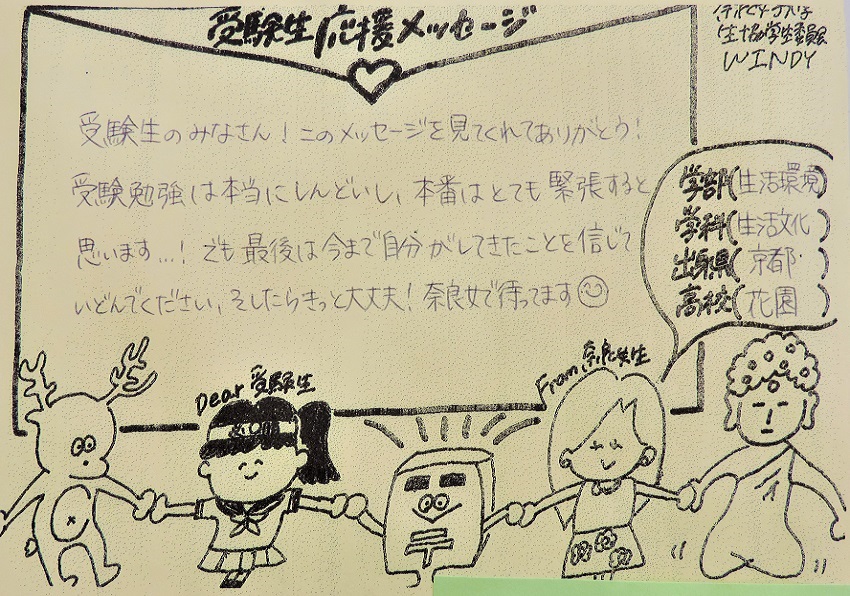 受験生応援メッセージ
生協学生委員会
WINDY
受験生のみなさん!このメッセージを見てくれてありがとう!
受験勉強は本当にしんどいし、本番はとても緊張すると
思います…!でも最後は今まで自分がしてきたことを信じて
いどんでください、そしたらきっと大丈夫!奈良女で待ってます
学部(生活環境)
学科(生活文化)
出身県(京都)
高校(花園)
Dear 受験生
From 奈良女生